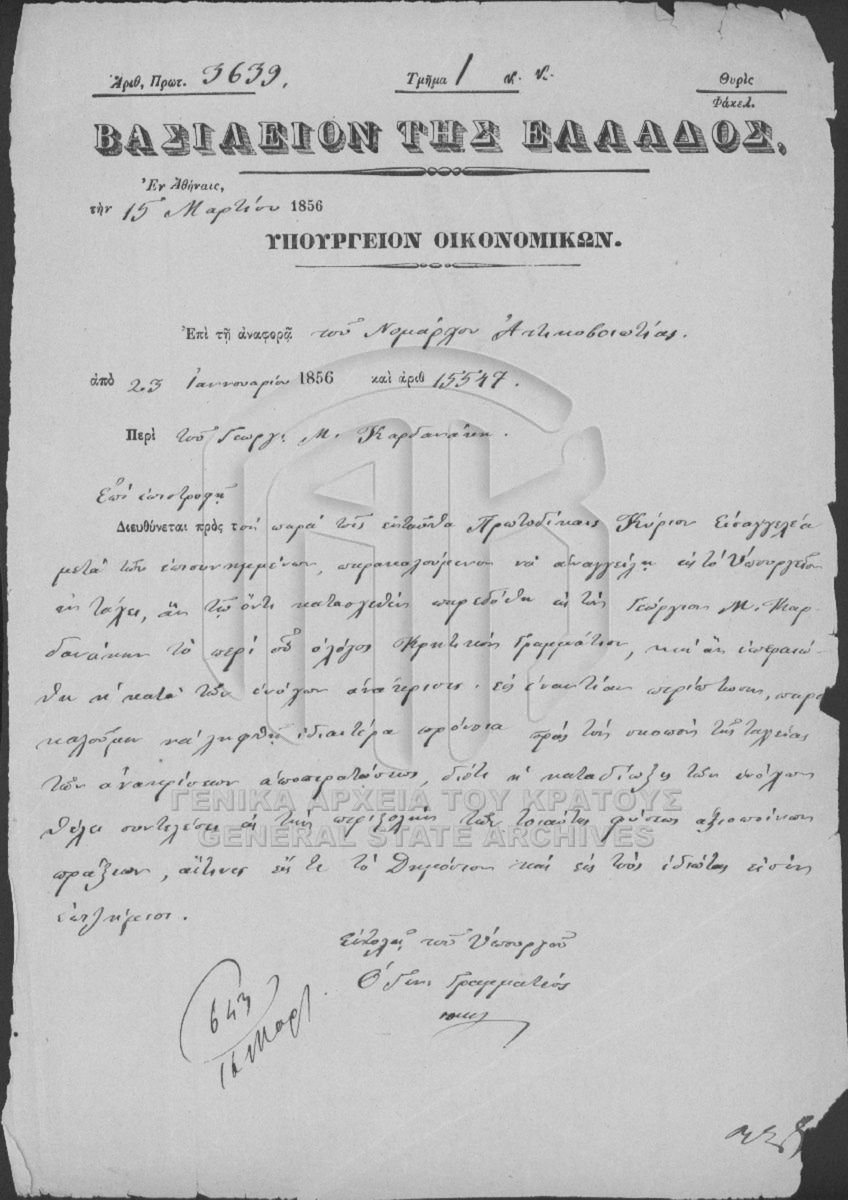 Ἀριθ. Πρωτ. 3639.
Τμῆμα 1
Θυρὶς
Φάκελ.
ΒΑΣΙΛΕΙΟΝ ΤΗΣ ΕΛΛΑΔΟΣ.
Ἐν Ἀθήναις,
τὴν 15 Μαρτίου 1856
ΥΠΟΥΡΓΕΙΟΝ ΟΙΚΟΝΟΜΙΚΩΝ.
Ἐπὶ τῇ ἀναφορᾷ τοῦ Νομάρχου Ἀττικοβοιωτίας.
ἀπὸ 23 Ἰαννουαρίου 1856 καὶ ἀριθ 15547.
Περὶ τοῦ Γεωργ. Μ. Καρδανάκη.
Ἐπὶ ἐπιστροφῇ
Διευθύνεται πρὸς τὸν παρὰ τοῖς ἐνταῦθα Πρωτοδίκαις Κύριον Εἰσαγγελέα
μετὰ τῶν ἐπισυνημμένων, παρακαλούμενον νὰ ἀναγγείλῃ εἰς τὸ Ὑπουργεῖον
ἐν τάχει, ἂν τῷ ὄντι κατασχεθὲν παρεδόθη εἰς τὸν Γεώργιον Μ. Καρ-
δανάκην τὸ περὶ οὗ ὁ λόγος Κρητικὸν Γραμμάτιον, καὶ ἂν ἐπεραιώ-
θη ἡ κατὰ τῶν ἐνόχων ἀνάκρισις· εἰς ἐναντίαν περίπτωσιν, παρα
καλοῦμεν νὰ ληφθῇ ἰδιαιτέρα πρόνοια πρὸς τὸν σκοπὸν τῆς ταχείας
τῶν ἀνακρίσεων ἀποπερατώσεως, διότι ἡ καταδίωξις τῶν ἐνόχων
θέλει συντελέσει εἰς τὴν περιστολὴν τῶν τοιαύτης φύσεως ἀξιοποίνων
πράξεων, αἵτινες εἴς τε τὸ Δημόσιον καὶ εἰς τοὺς ἰδιώτας εἰσὶν
ἐπιζήμιοι.
Ἐντολῇ τοῦ Ὑπουργοῦ
Ὁ Γεν. Γραμματεὺς
643
16 Μαρτ
ΓΕΝΙΚΑ ΑΡΧΕΙΑ ΤΟΥ ΚΡΑΤΟΥΣ
GENERAL STATE ARCHIVES